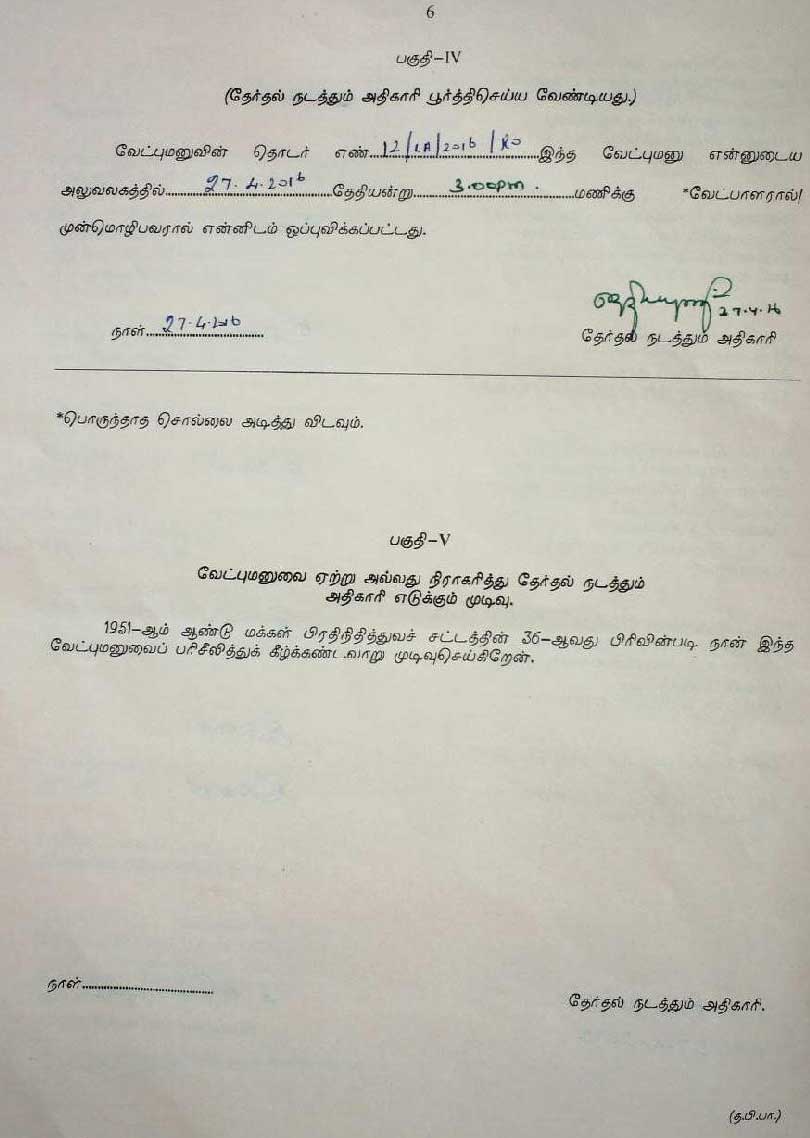 6
பகுதி–IV
(தேர்தல் நடத்தும் அதிகாரி பூர்த்திசெய்ய வேண்டியது.)
வேட்புமனுவின் தொடர் எண் 12/LA/2016/RO இந்த வேட்புமனு என்னுடைய
அலுவலகத்தில் 27.4.2016 தேதியன்று 3.00pm. மணிக்கு *வேட்பாளரால்/
முன்மொழிபவரால் என்னிடம் ஒப்புவிக்கப்பட்டது.
27.4.16
நாள் 27.4.2016 தேர்தல் நடத்தும் அதிகாரி
*பொருந்தாத சொல்லை அடித்து விடவும்.
பகுதி–V
வேட்புமனுவை ஏற்று அல்லது நிராகரித்து தேர்தல் நடத்தும்
அதிகாரி எடுக்கும் முடிவு.
1951–ஆம் ஆண்டு மக்கள் பிரதிநிதித்துவச் சட்டத்தின் 36–ஆவது பிரிவின்படி நான் இந்த
வேட்புமனுவைப் பரிசீலித்துக் கீழ்க்கண்டவாறு முடிவுசெய்கிறேன்.
நாள்
தேர்தல் நடத்தும் அதிகாரி.
(த.பி.பா.)